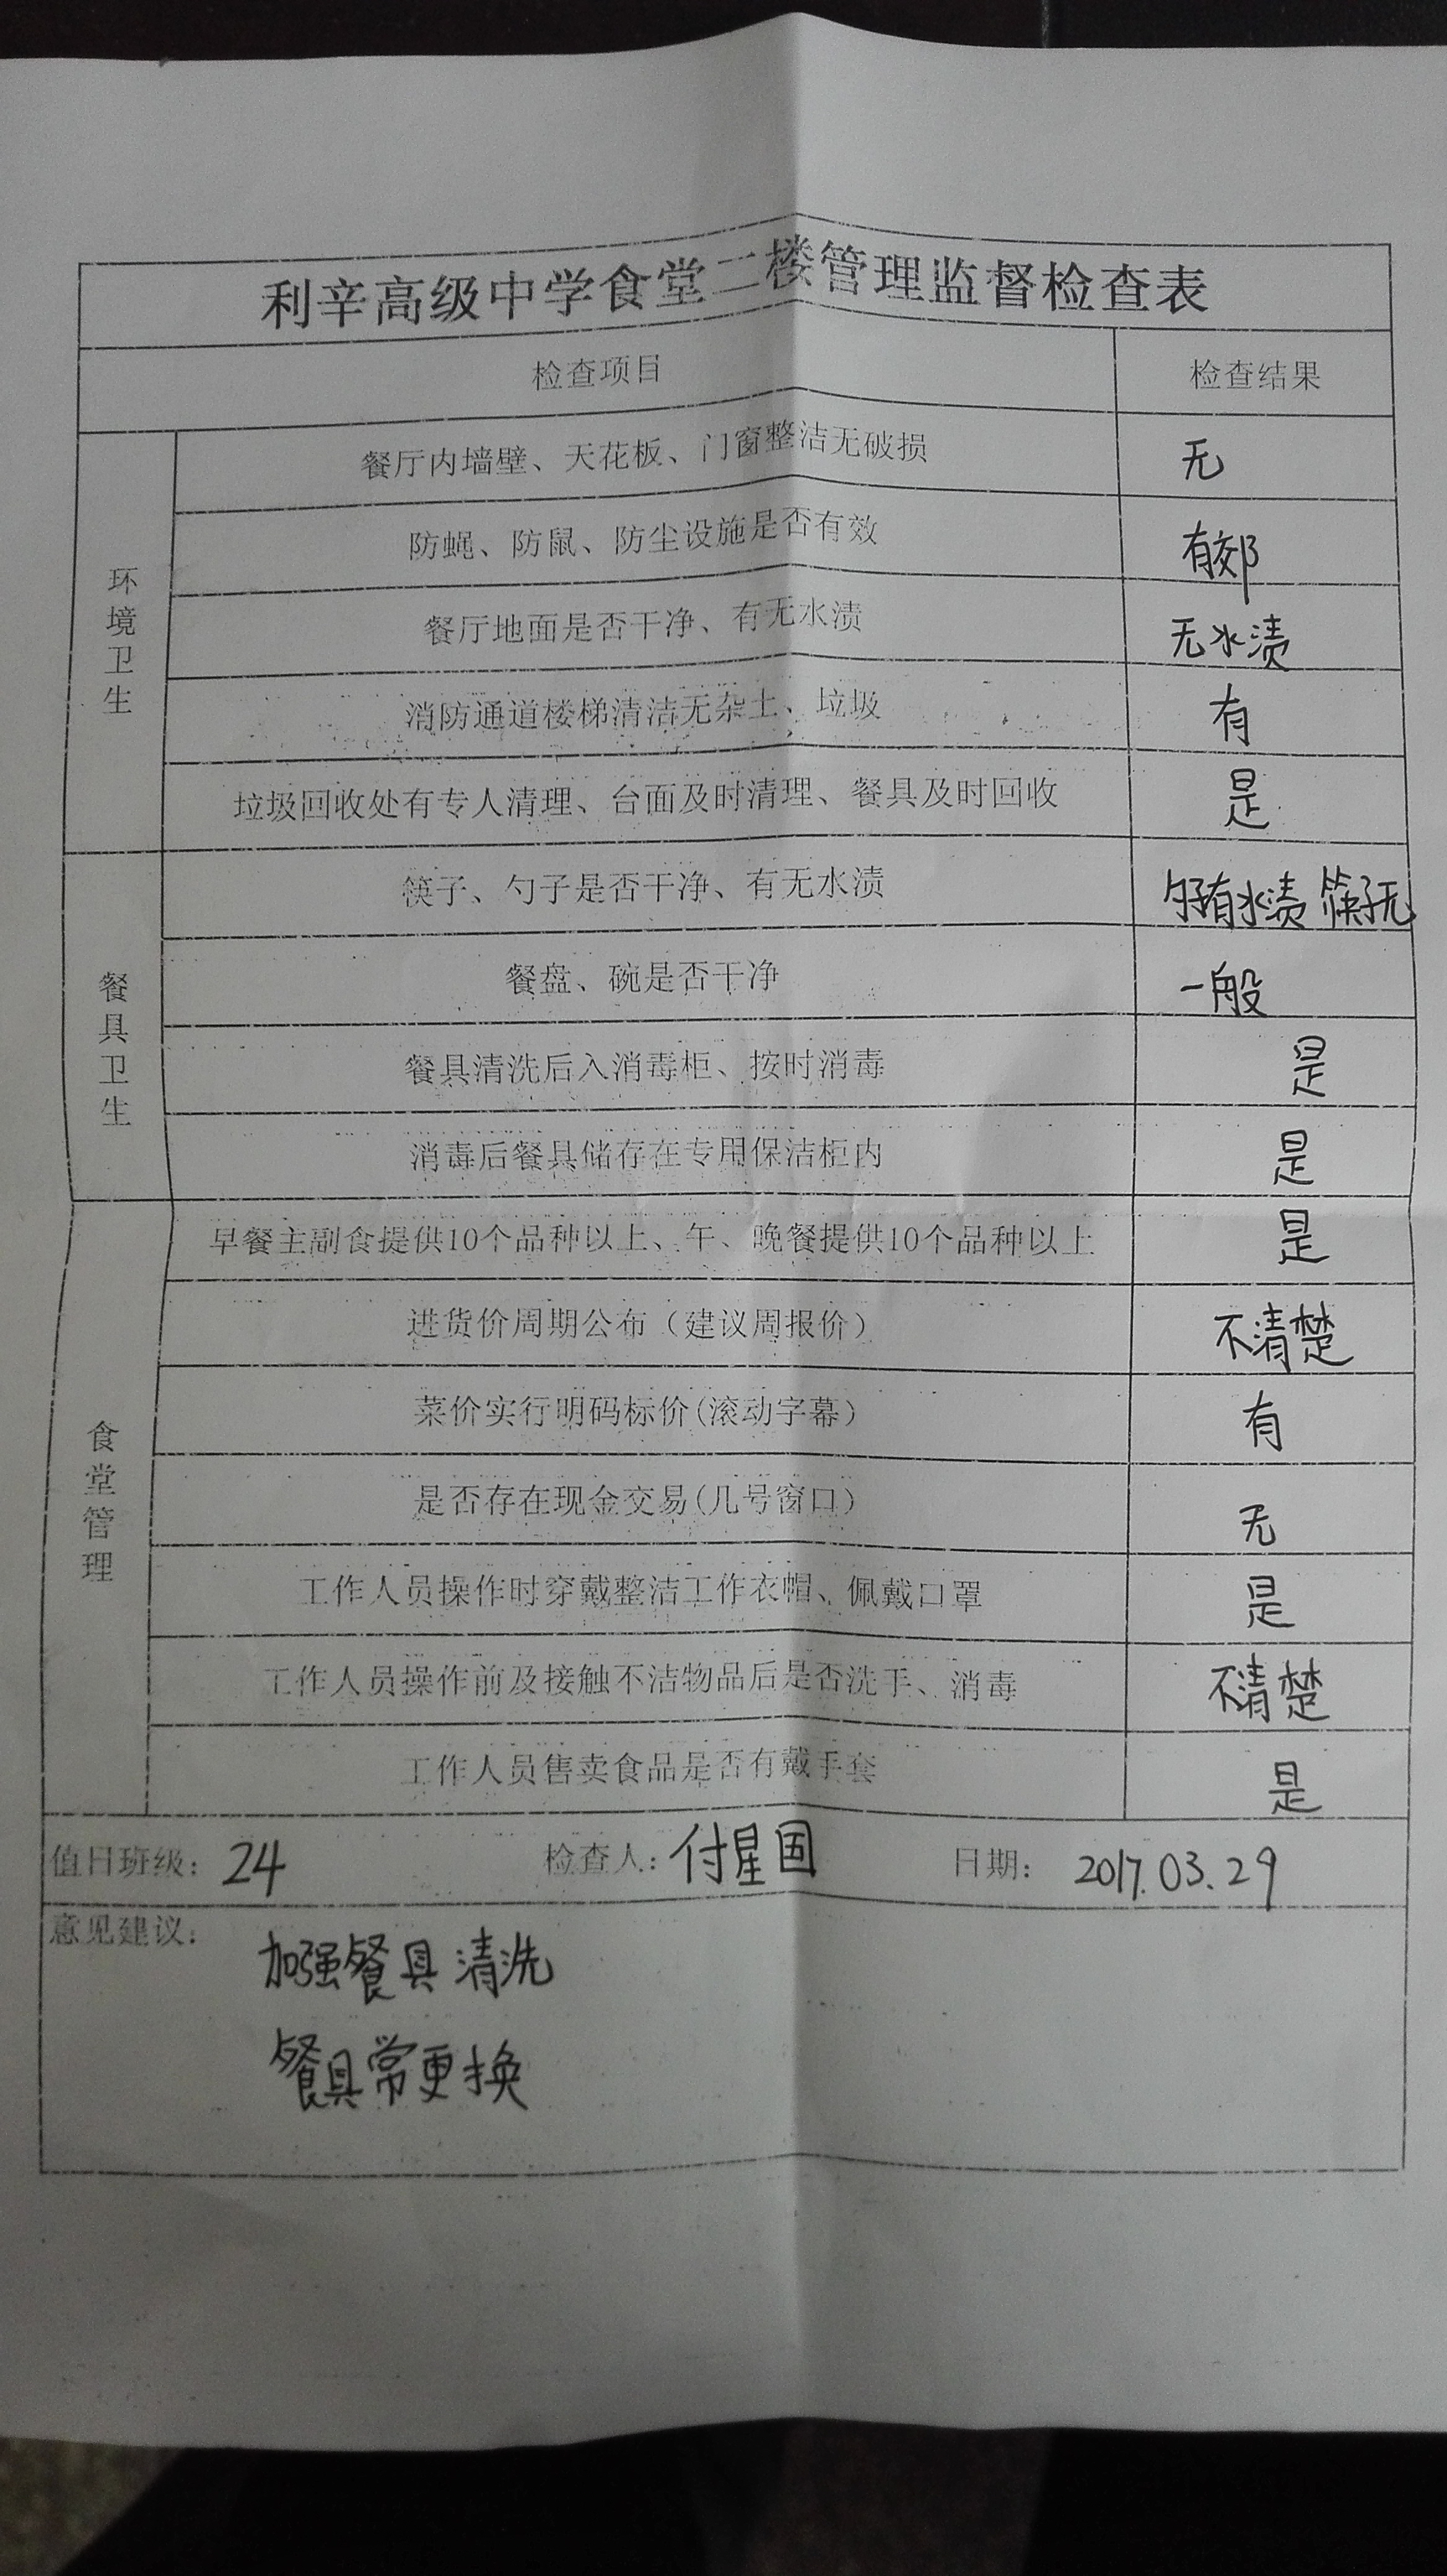 利辛高级中学食堂二楼管理监督检查表
检查项目 检查结果
环境卫生
餐厅内墙壁、天花板、门窗整洁无破损 无
防蝇、防鼠、防尘设施是否有效 有效
餐厅地面是否干净、有无水渍 无水渍
消防通道楼梯清洁无杂土、垃圾 有
垃圾回收处有专人清理、台面及时清理、餐具及时回收 是
餐具卫生
筷子、勺子是否干净、有无水渍 勺子有水渍 筷子无
餐盘、碗是否干净 一般
餐具清洗后入消毒柜、按时消毒 是
消毒后餐具储存在专用保洁柜内 是
食堂管理
早餐主副食提供10个品种以上、午、晚餐提供10个品种以上 是
进货价周期公布（建议周报价） 不清楚
菜价实行明码标价(滚动字幕） 有
是否存在现金交易(几号窗口） 无
工作人员操作时穿戴整洁工作衣帽、佩戴口罩 是
工作人员操作前及接触不洁物品后是否洗手、消毒 不清楚
工作人员售卖食品是否有戴手套 是
值日班级：24 检查人：付星国 日期：2017.03.29
意见建议：
加强餐具清洗
餐具常更换